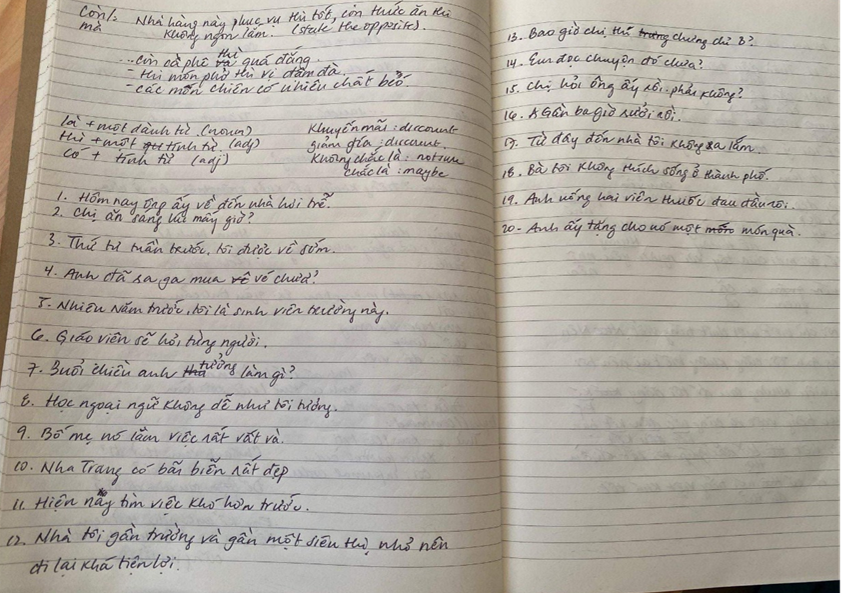 Còn/: Nhà hàng này phục vụ thì tốt, còn thức ăn thì
mà không ngon lắm. (state the opposite).
...còn cà phê thì quá đắng.
- thì món phở thì vị đậm đà.
- các món chiên có nhiều chất béo.
là + một danh từ (noun)
thì + một tính từ (adj)
có + tính từ (adj)
Khuyến mãi : discount
giảm giá : discount.
Không chắc là : not sure
chắc là : maybe
1. Hôm nay ông ấy về đến nhà hơi trễ.
2. Chị ăn sáng lúc mấy giờ?
3. Thứ tư tuần trước, tôi được về sớm.
4. Anh đã ra ga mua vé chưa?
5. Nhiều năm trước, tôi là sinh viên trường này.
6. Giáo viên sẽ hỏi từng người.
7. Buổi chiều anh tưởng làm gì?
8. Học ngoại ngữ không dễ như tôi tưởng.
9. Bố mẹ nó làm việc rất vất vả.
10. Nha Trang có bãi biển rất đẹp
11. Hiện nay tìm việc khó hơn trước.
12. Nhà tôi gần trường và gần một siêu thị nhỏ nên
đi lại khá tiện lợi.
13. Bao giờ chị thi chứng chỉ B?
14. Em đọc chuyện đó chưa?
15. Chị hỏi ông ấy rồi, phải không?
16. Gần ba giờ rưỡi rồi.
17. Từ đây đến nhà tôi không xa lắm.
18. Bà tôi không thích sống ở thành phố.
19. Anh uống hai viên thuốc đau đầu rồi.
20. Anh ấy tặng cho nó một món quà.